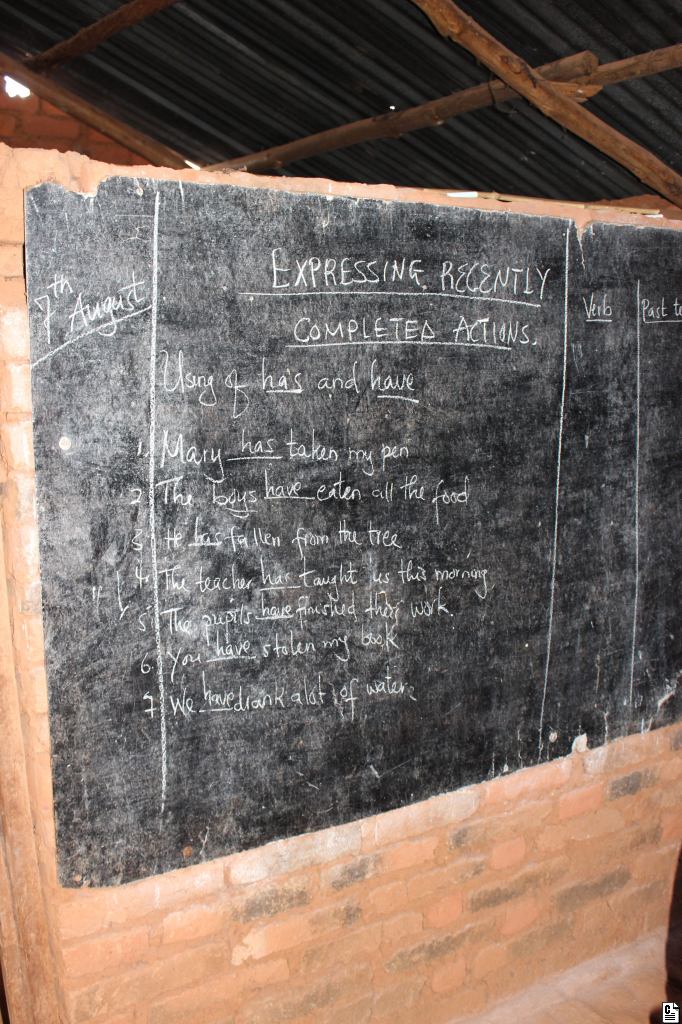 7th August
EXPRESSING RECENTLY
COMPLETED ACTIONS.
Using of has and have
1. Mary has taken my pen
2 The boys have eaten all the food
3 He has fallen from the tree
4. The teacher has taught us this morning
5 The pupils have finished their work.
6. You have stolen my book
7 We have drank alot of water
Verb
Past te